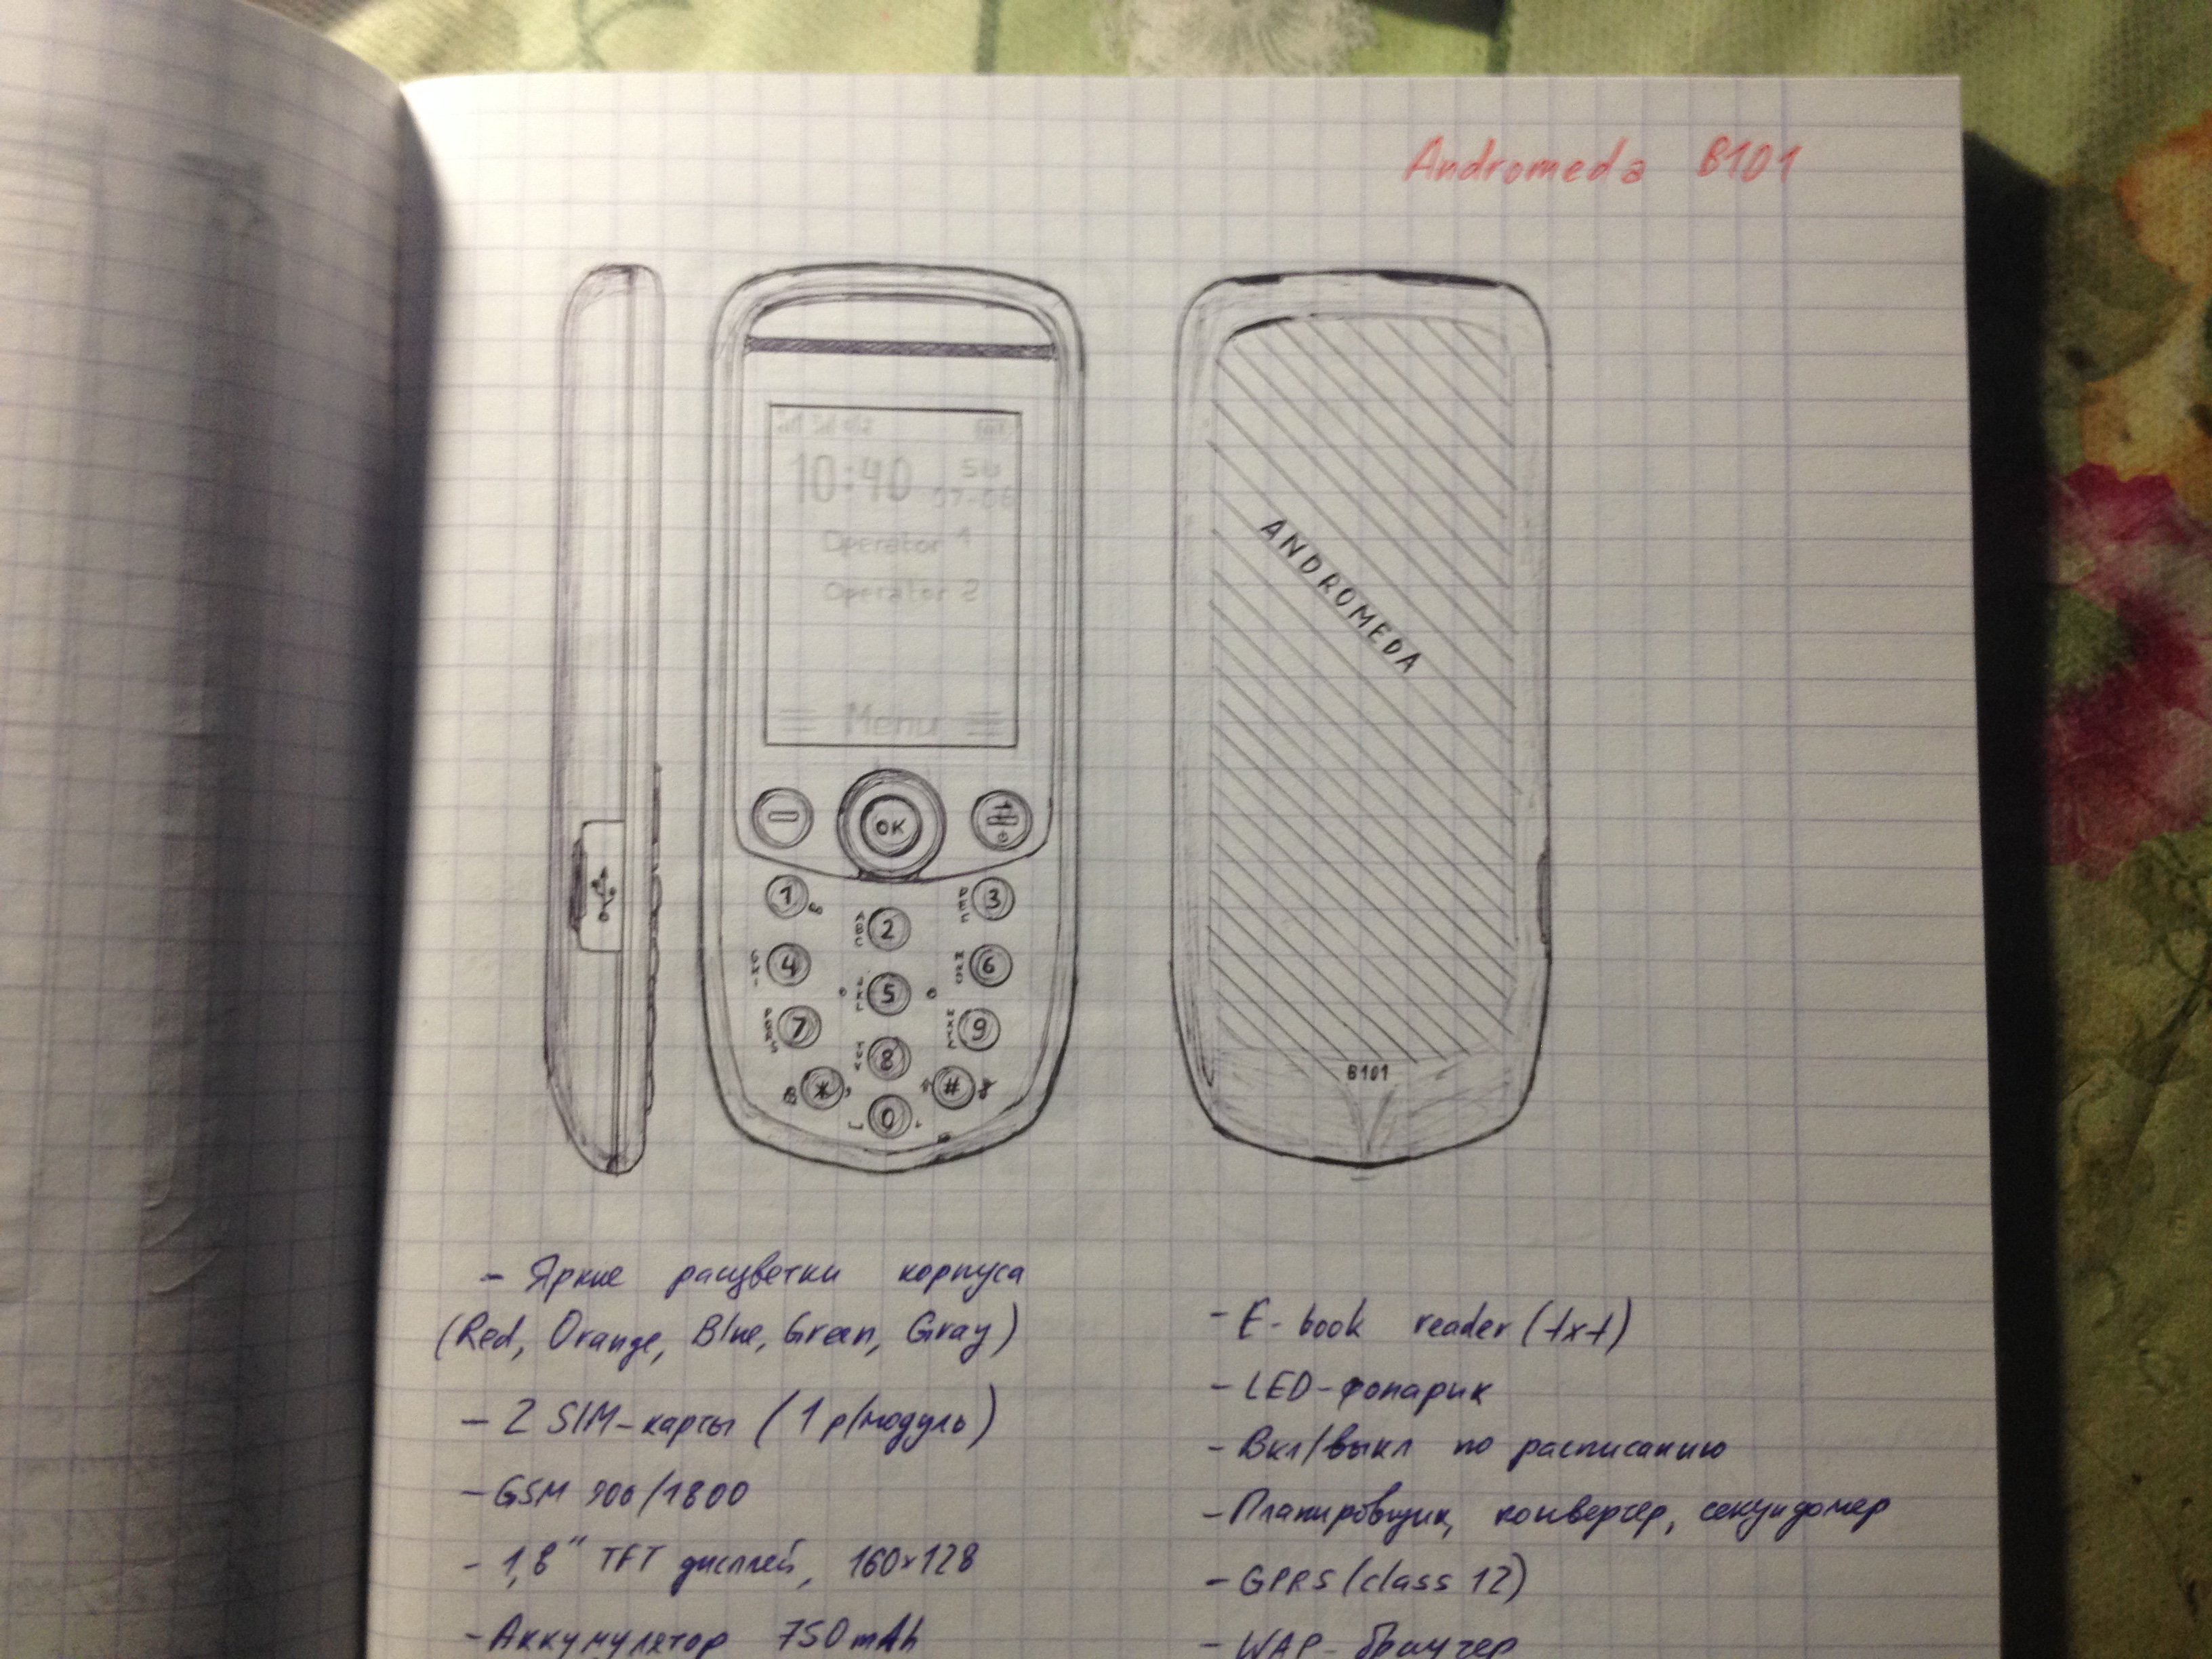 Andromeda B101
10:40 SU
07-06
Operator 1
Operator 2
Menu
OK
1
ABC 2
DEF 3
GHI 4
JKL 5
MNO 6
PQRS 7
TUV 8
WXYZ 9
*
0
#
ANDROMEDA
B101
- Яркие расцветки корпуса
(Red, Orange, Blue, Green, Gray)
- 2 SIM-карты (1 р/модуль)
- GSM 900/1800
- 1,8" TFT дисплей, 160x128
- Аккумулятор 750 mAh
- E-book reader (txt)
- LED-фонарик
- Вкл/выкл по расписанию
- Планировщик, конвертер, секундомер
- GPRS (class 12)
- WAP-браузер